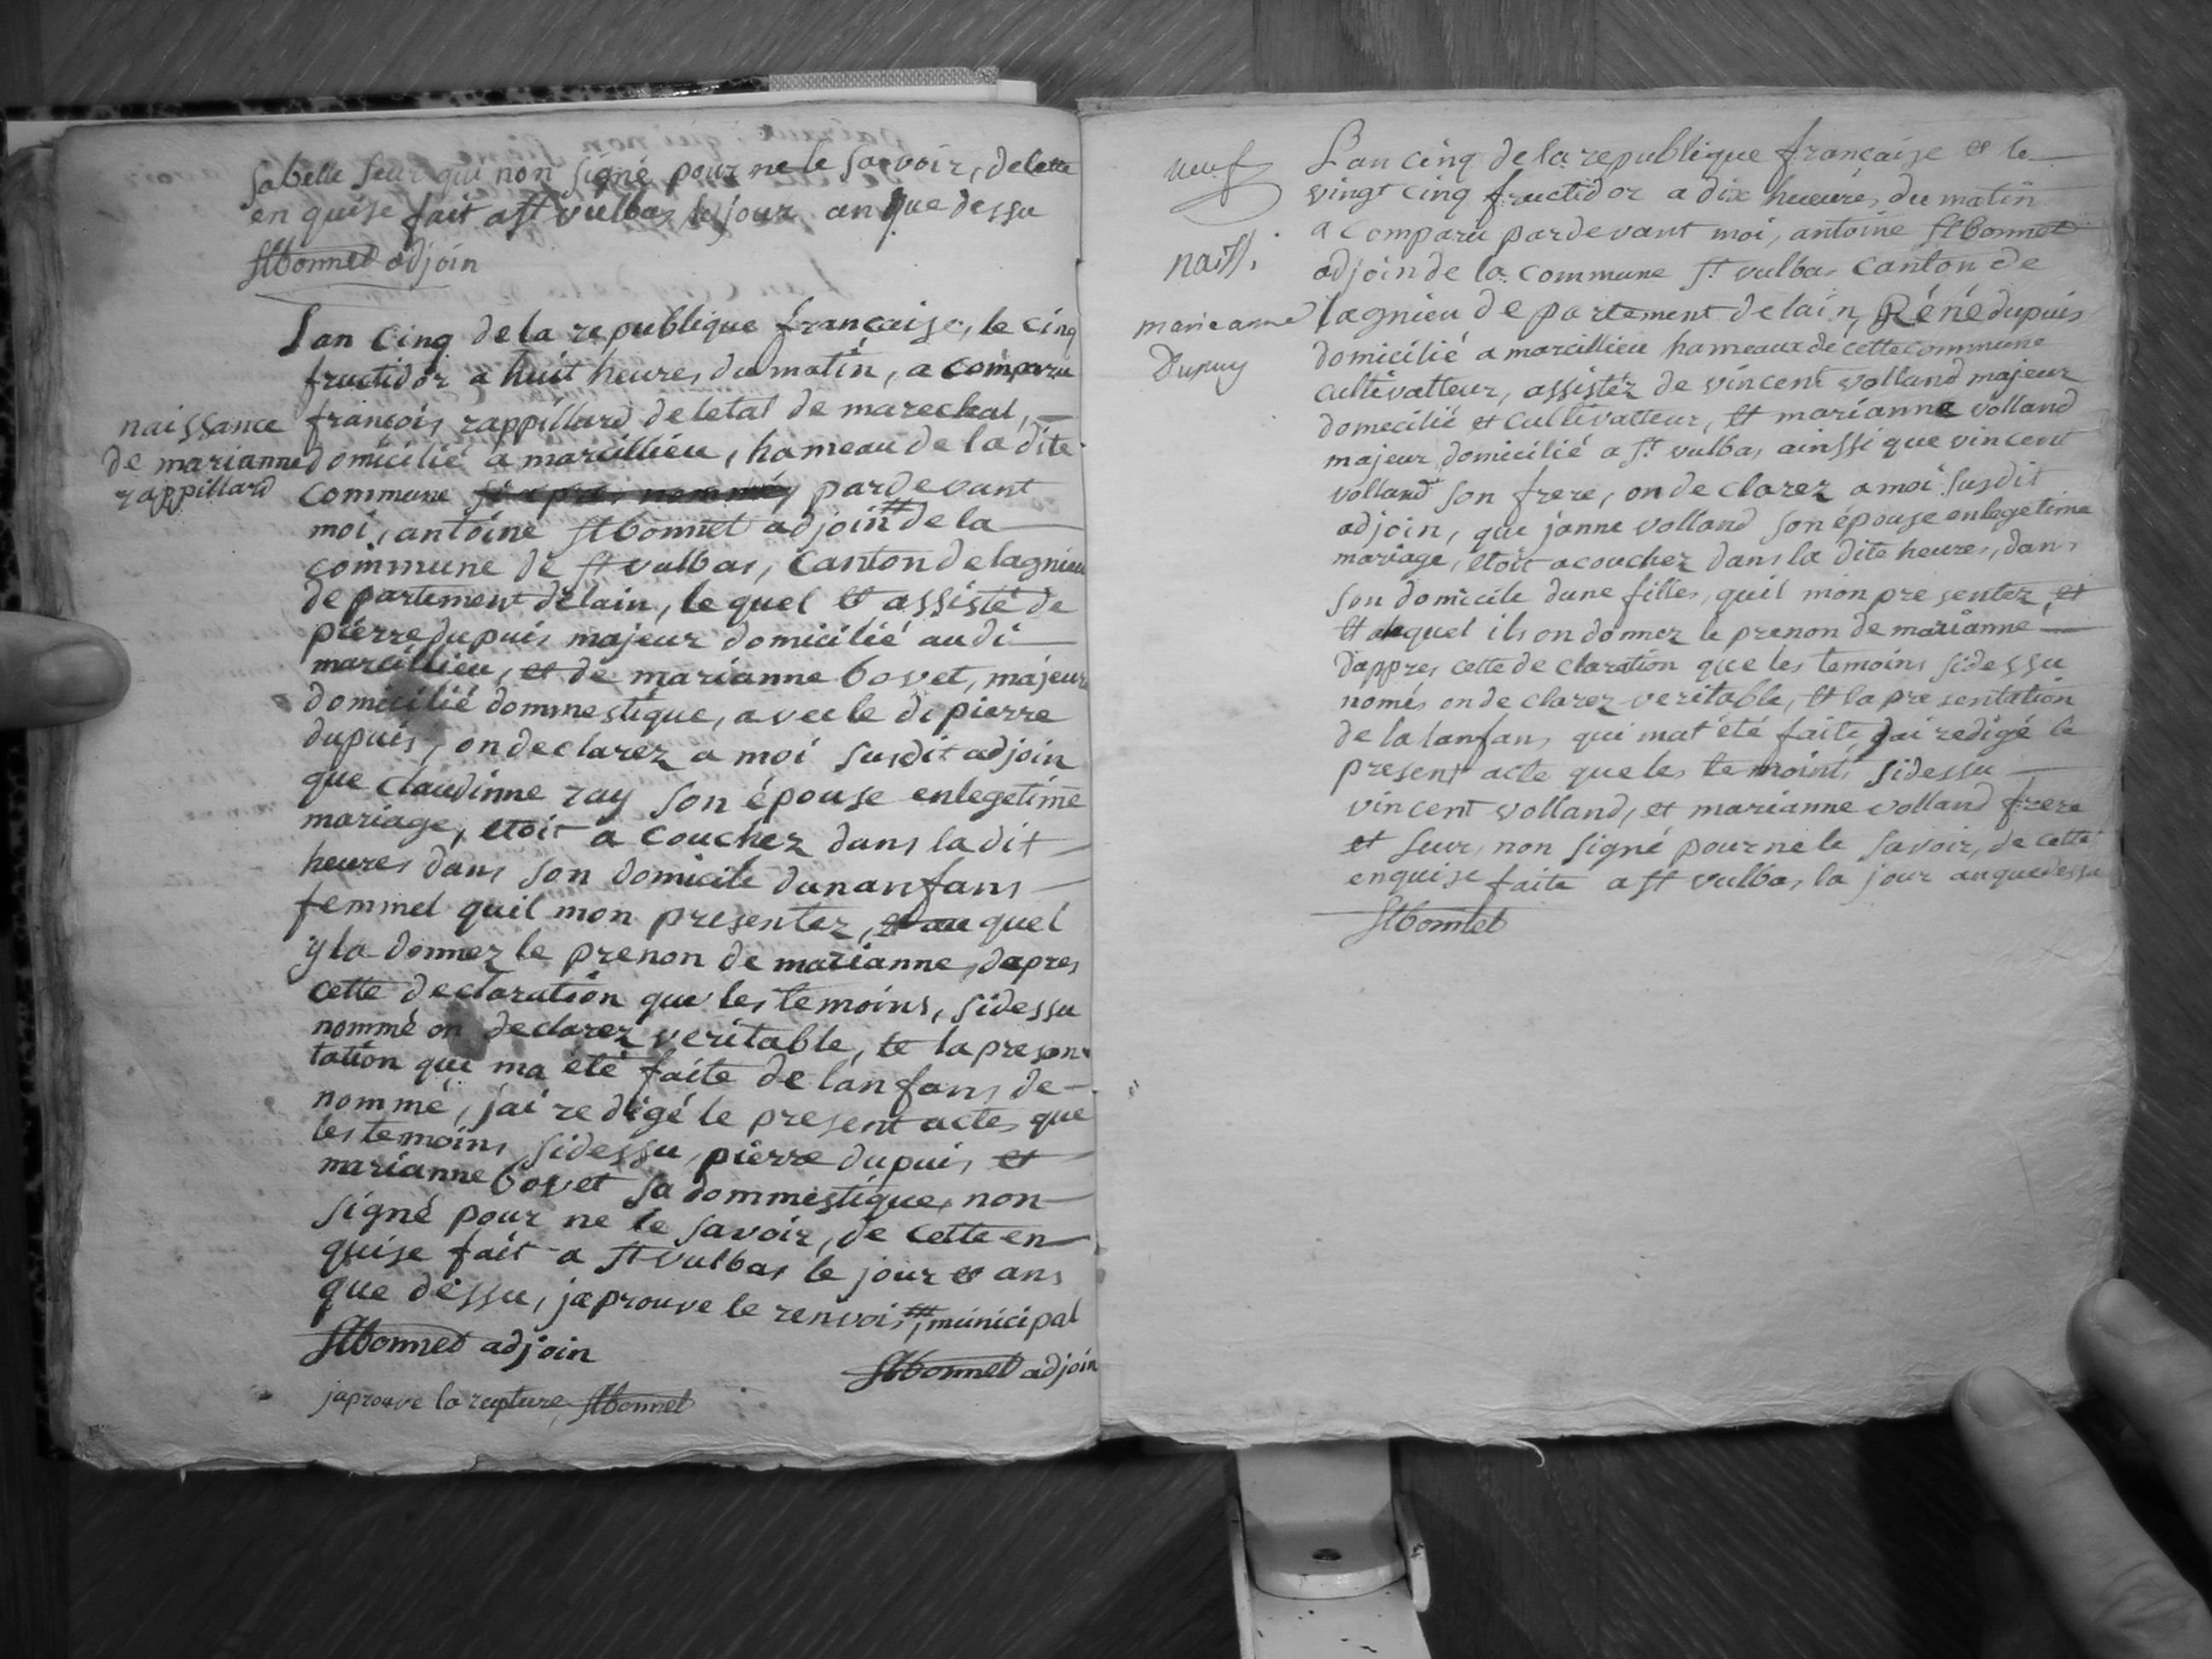 sabelle seur qui non signé pour ne le savoir, de cette
en quise fait a st vulbas le jour an que dessu
stbonnet adjoin
Lan cinq de la republique française, le cinq
fructidor a huit heures du matin, a comparu
naissance
de marianne
rappillard
françois rappillard de letat de marechal,
domicilié a marcillieu, hameau de la dite
commune pardevant
moi, antoine stbonnet adjoin de la
commune de st vulbas, canton de lagnieu
departement delain, le quel et assisté de
pierre dupuis majeur domicilié au di
marcillieu, et de marianne bovet, majeur
domicilié dommestique, avec le di pierre
dupuis, on declarez a moi susdit adjoin
que claudinne ray son épouse enlegetime
mariage, etoit a couchez dans la dit
heures dans son domicile dunanfans
femmel quil mon presentez, et au quel
y la donnez le prenon de marianne, dapres
cette declaration que les temoins, sidessu
nommé on declarez veritable, te la presen
tation qui ma été faite de lanfans de
nommé, jai redigé le present actes que
les temoins sidessu, pierre dupuis et
marianne bovet sa dommestique, non
signé pour ne le savoir, de cette en
quise fait a st vulbas le jour et ans
que dessu, japrouve le renvois, municipal
stbonnet adjoin
stbonnet adjoin
japrouve la rupture, stbonnet
neuf
naiss.
marie anne
Dupuy
Lan cinq de la republique française et le
vingt cinq fructidor a dix heures du matin
a comparu pardevant moi, antoine stbonnet
adjoin de la commune st. vulbas canton de
lagnieu departement delain, Réné dupuis
domicilié a marcillieu hameaux de cette commune
cultivatteur, assistéz de vincent volland majeur
domecilié et cultivatteur, et marianne volland
majeur domicilié a st. vulbas, ainssi que vincent
volland son frere, on declarez a moi susdit
adjoin, que janne volland son épouse enlegetime
mariage, etoit acouchez dans la dite heures, dans
son domicile dune filles, quil mon presentez, et
et alequel ils on donnez le prenon de marianne
dappres cette declaration que les temoins sidessu
només on declarez veritable, et la presentation
de la lanfans qui mat été faite jai redigé le
present acte que les temoints sidessu
vincent volland, et marianne volland frere
et seur, non signé pour ne le savoir, de cette
enquise faite a st vulbas, la jour anquedessu
stbonnet